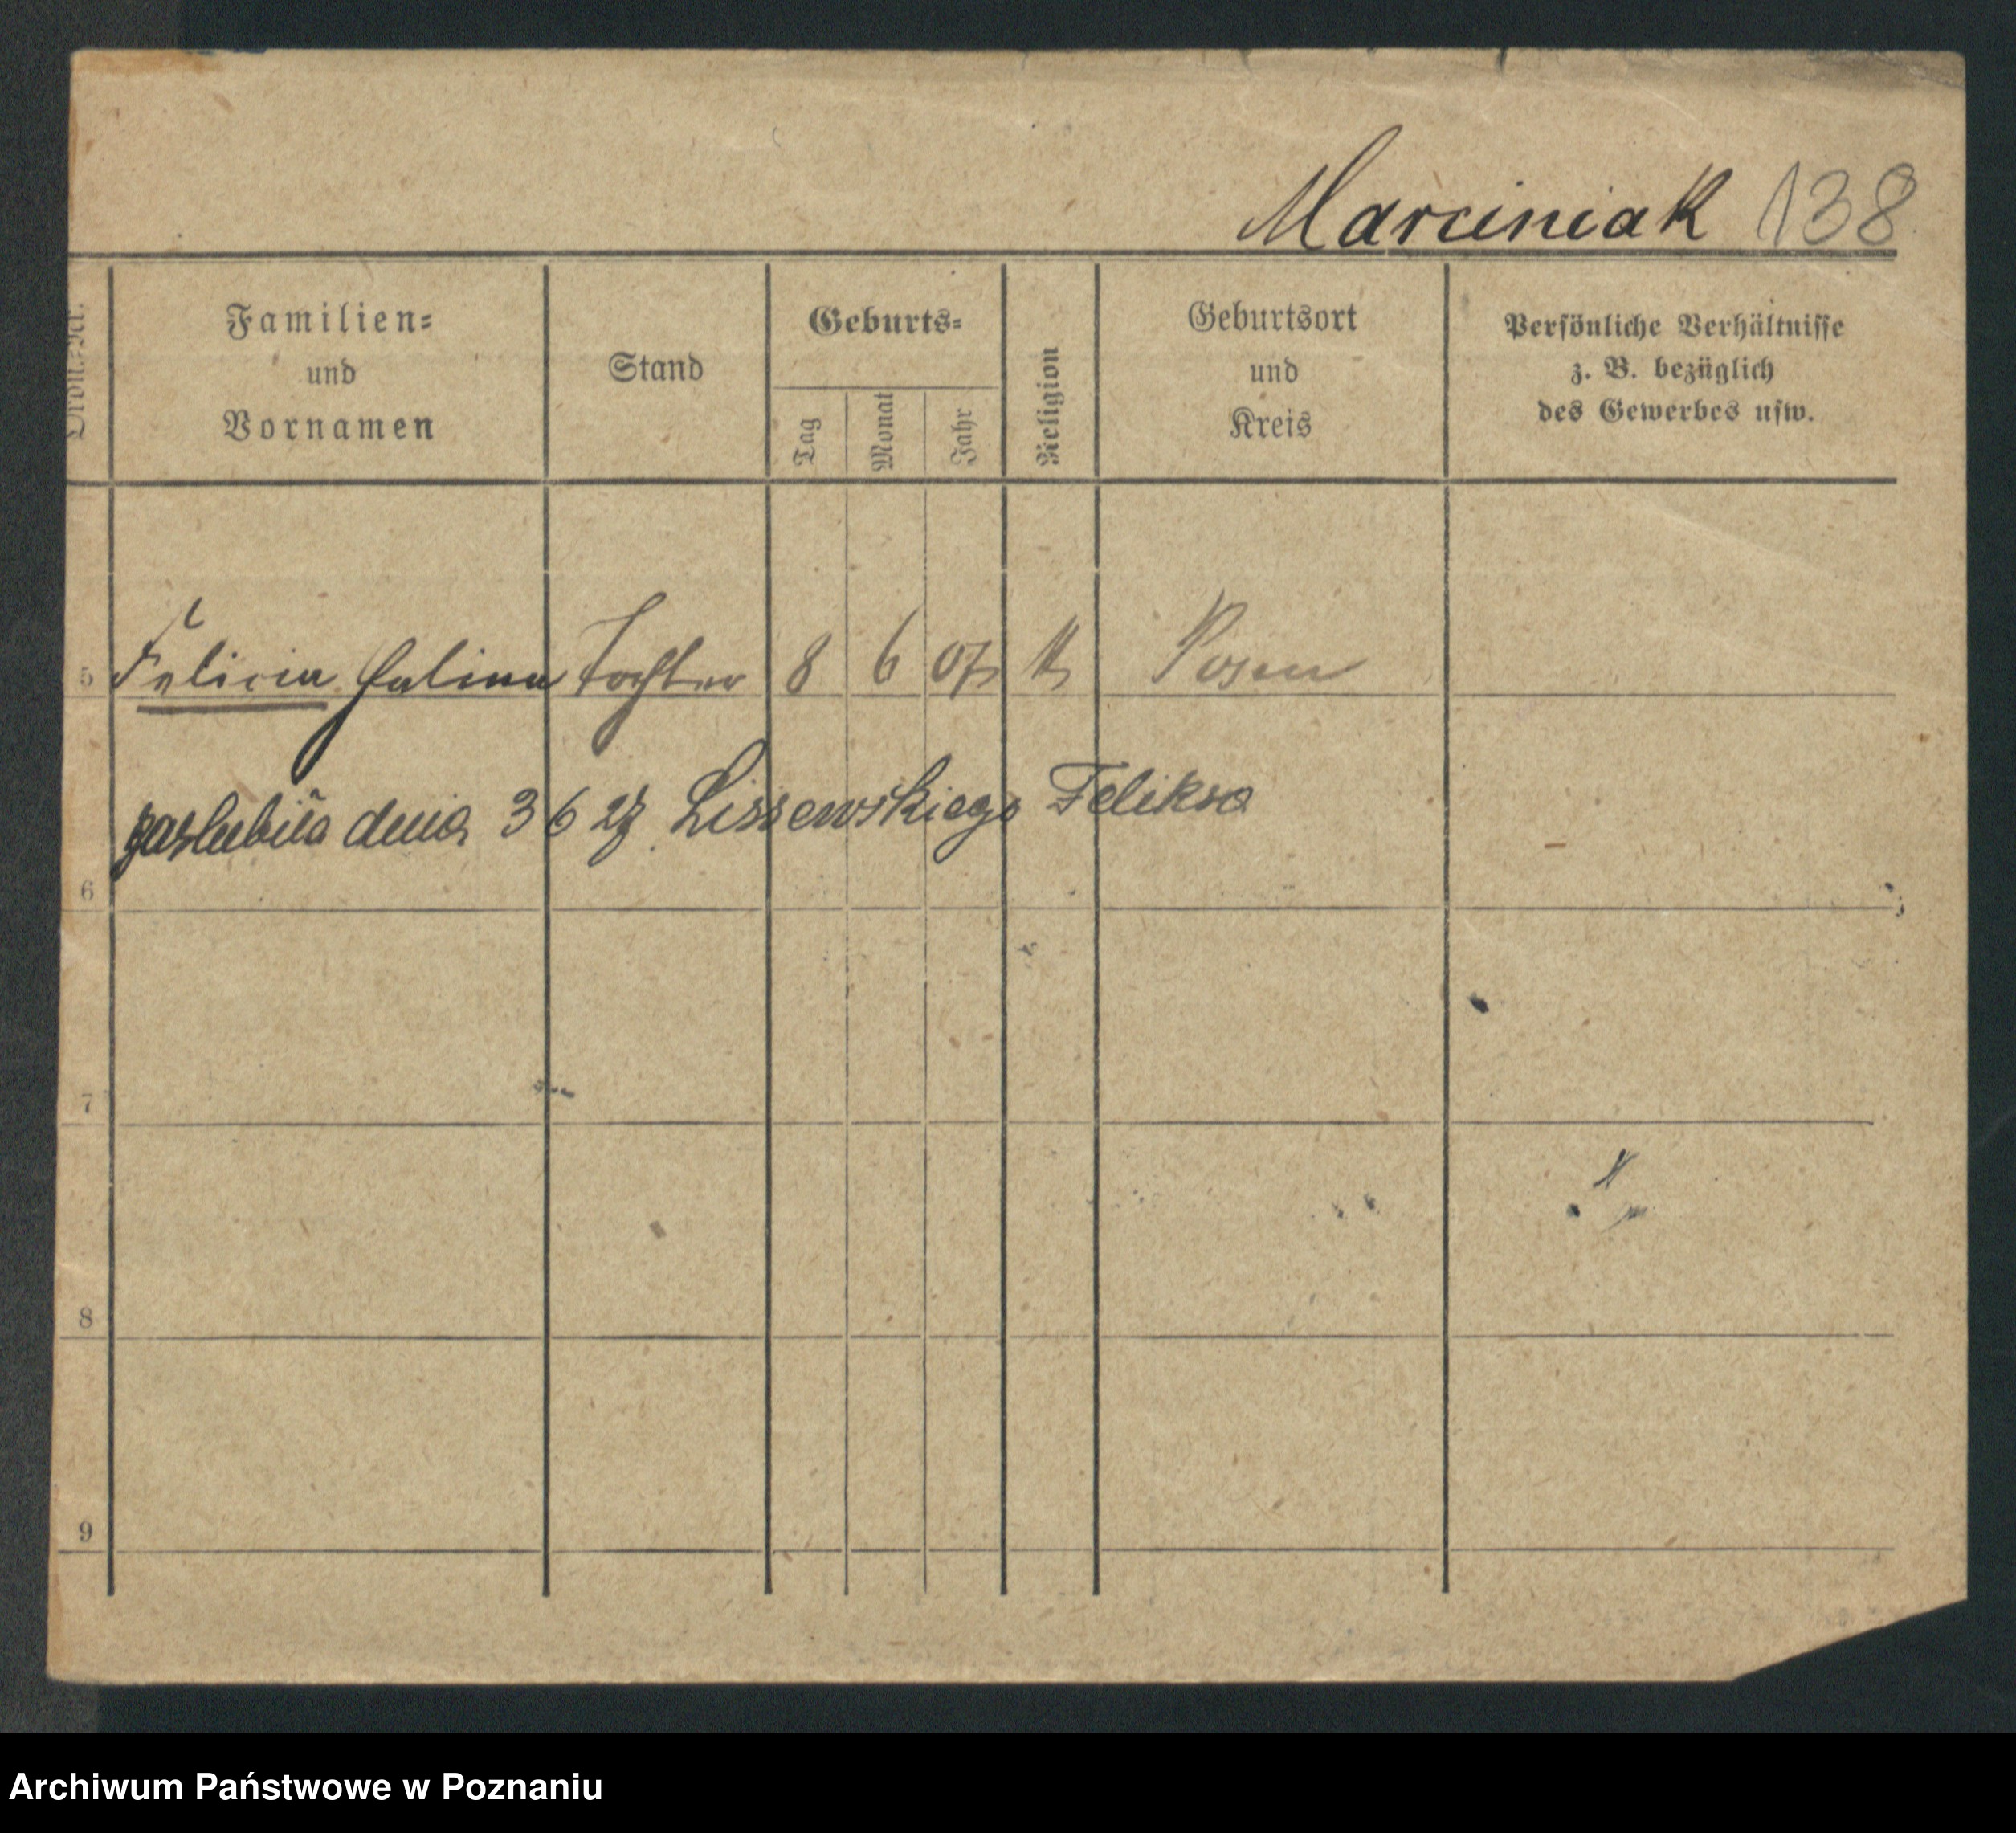 Marciniak 138
Ordn.-Nr.
Familien-
und
Vornamen
Stand
Geburts-
Tag
Monat
Jahr
Religion
Geburtsort
und
Kreis
Persönliche Verhältnisse
z. B. bezüglich
des Gewerbes usw.
5 Felicia Halina Tochter 8 6 07 k Posen
zaslubiła dnia 3 6 27 Lissewskiego Feliksa
6
7
8
9
Archiwum Państwowe w Poznaniu